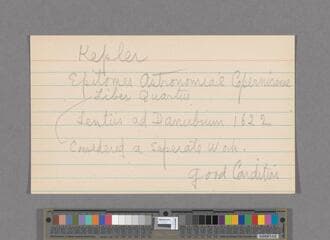 Kepler
Epitomes Astronomiae Copernicae
Liber Quartus
Lentiis ad Danubium 1622
Considered a Seperate Work.
Good Condition